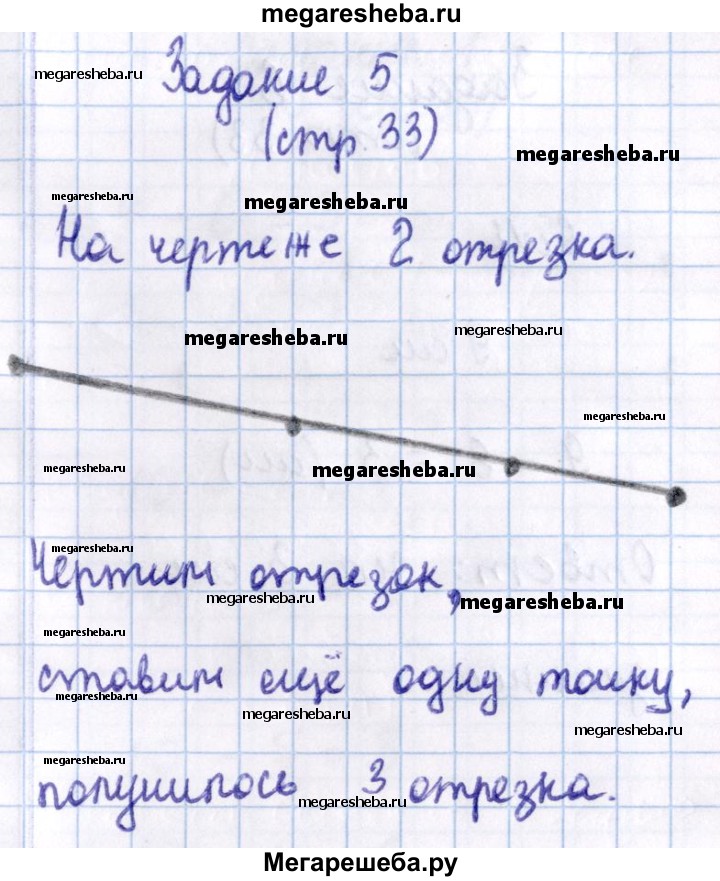 megaresheba.ru
megaresheba.ru
Задание 5
(стр 33)
megaresheba.ru
megaresheba.ru
megaresheba.ru
На чертеже 2 отрезка.
megaresheba.ru
megaresheba.ru
megaresheba.ru
megaresheba.ru
megaresheba.ru
megaresheba.ru
Чертим отрезок,
megaresheba.ru
megaresheba.ru
megaresheba.ru
ставим ещё одну точку,
megaresheba.ru
megaresheba.ru
megaresheba.ru
megaresheba.ru
получилось 3 отрезка.
megaresheba.ru
megaresheba.ru
Мегарешеба.ру